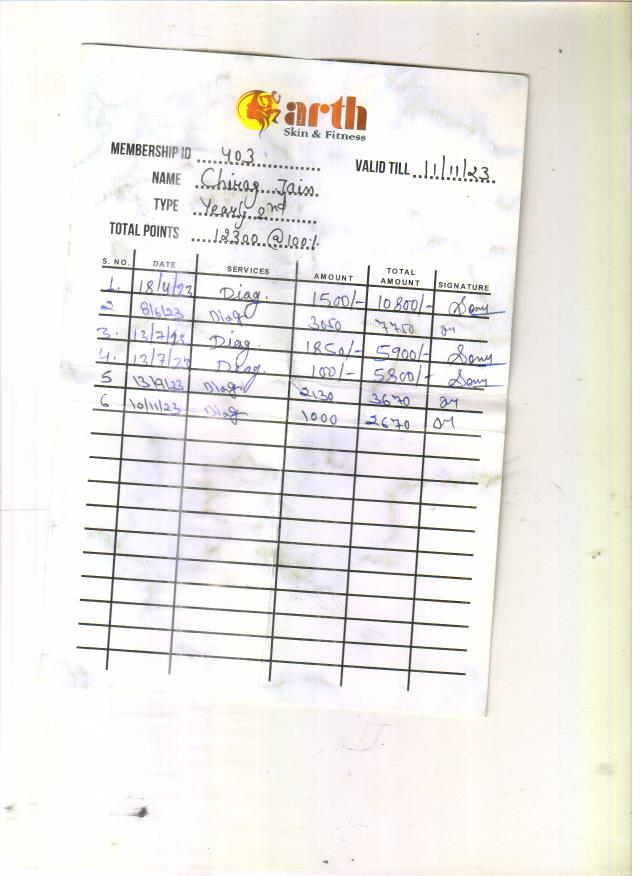 arth
Skin & Fitness
MEMBERSHIP ID 403
VALID TILL 11/11/23
NAME Chirag Jain
TYPE Yearly 2nd
TOTAL POINTS 12300 @100%
S. NO. DATE SERVICES AMOUNT TOTAL AMOUNT SIGNATURE
1. 18/4/23 Diag. 1500/- 10800/- Sony
2 8/6/23 Diag 3050 7750
3. 13/7/23 Diag. 1850/- 5900/- Sony
4. 13/7/23 Diag. 100/- 5800/- Sony
5 13/9/23 Diag 2130 3670
6 10/11/23 Diag 1000 2670